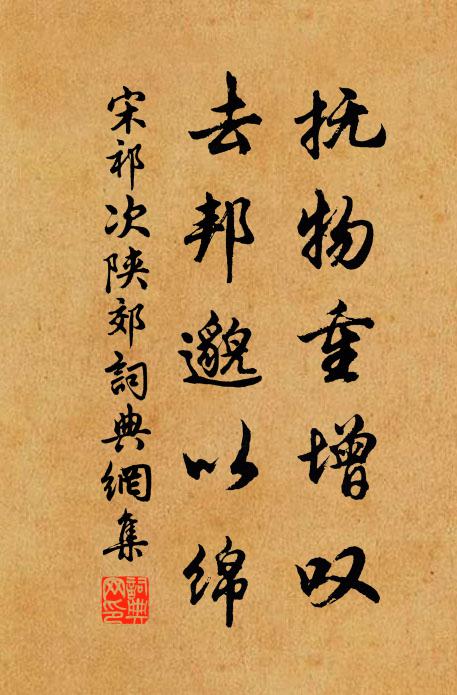 抚物重增叹
去邦邈以绵
宋祁次陕郊詞典網集
詞典網印